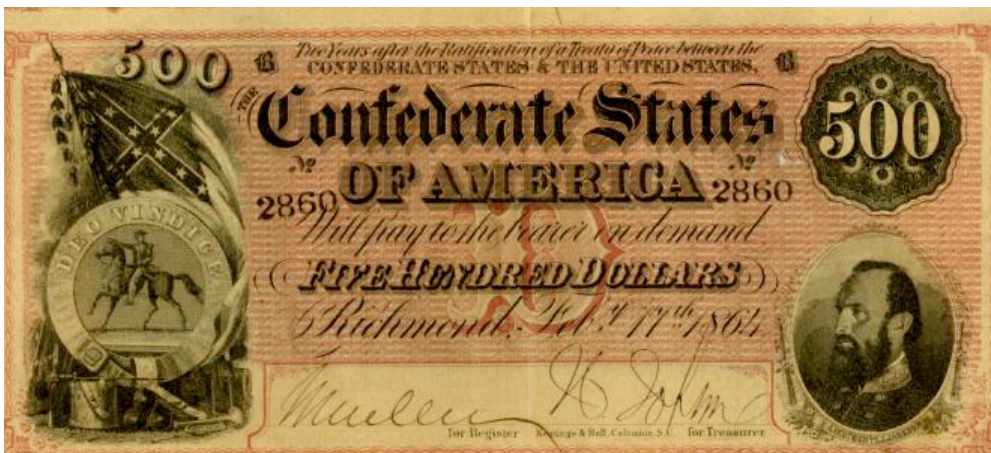 500
Two Years after the Ratification of a Treaty of Peace between the
CONFEDERATE STATES & THE UNITED STATES,
THE
Confederate States
500
No No
OF AMERICA
2860 2860
DEO VINDICE
Will pay to the bearer on demand
FIVE HUNDRED DOLLARS
Richmond, Feb.y 17th 1864
for Register
Keatinge & Ball, Columbia, S.C.
for Treasurer